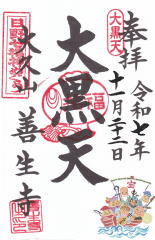 奉拝
大黒天
令和七年
十一月二十二日
大黒天
福
永久山
善生寺